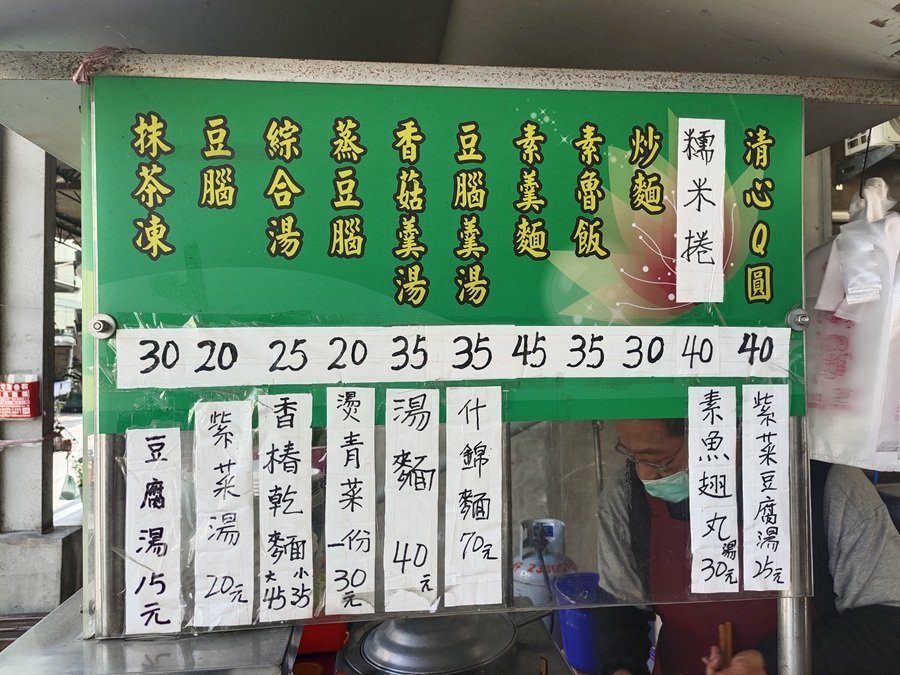 清心Q圓
糯米捲
炒麵
素魯飯
素羹麵
豆腦羹湯
香菇羹湯
蒸豆腦
綜合湯
豆腦
抹茶凍
30 20 25 20 35 35 45 35 30 40 40
紫菜豆腐湯25元
素魚翅丸湯30元
什錦麵70元
湯麵 40元
燙青菜一份30元
香椿乾麵 大45 小35
紫菜湯 20元
豆腐湯15元